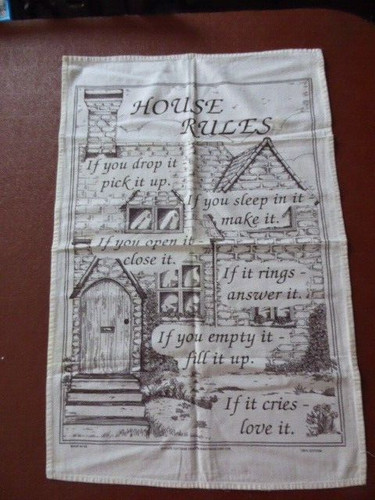 HOUSE
RULES
If you drop it
pick it up.
If you sleep in it
make it.
If you open it
close it.
If it rings -
answer it.
If you empty it -
fill it up.
If it cries -
love it.